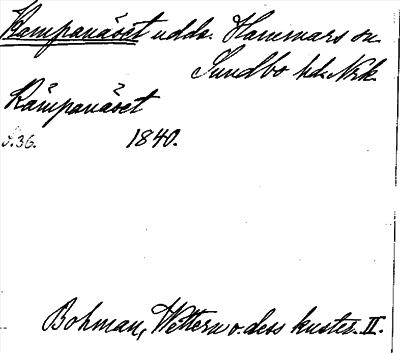 Kampanäset udde. Hammars sn.
Sundbo hd. Nrk.
Kämpanäset
S. 36. 1840.
Bohman, Wettern o. dess kuster. II.